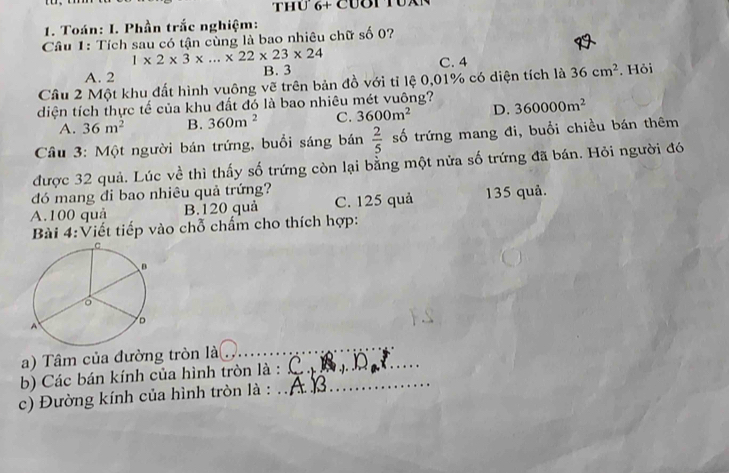 THỨ 6+ CUỐI TUẦN
1. Toán: I. Phần trắc nghiệm:
Câu 1: Tích sau có tận cùng là bao nhiêu chữ số 0?
1 × 2 × 3 × ... × 22 × 23 × 24
A. 2 B. 3 C. 4
Câu 2 Một khu đất hình vuông vẽ trên bản đồ với tỉ lệ 0,01% có diện tích là 36 cm². Hỏi
diện tích thực tế của khu đất đó là bao nhiêu mét vuông?
A. 36 m² B. 360m ² C. 3600m² D. 360000m²
Câu 3: Một người bán trứng, buổi sáng bán 2/5 số trứng mang đi, buổi chiều bán thêm
được 32 quả. Lúc về thì thấy số trứng còn lại bằng một nửa số trứng đã bán. Hỏi người đó
đó mang đi bao nhiêu quả trứng?
A.100 quả B.120 quả C. 125 quả 135 quả.
Bài 4:Viết tiếp vào chỗ chấm cho thích hợp:
C
B
O
A
D
a) Tâm của đường tròn là...............................
b) Các bán kính của hình tròn là : C, B, D,......
c) Đường kính của hình tròn là : ..AB................